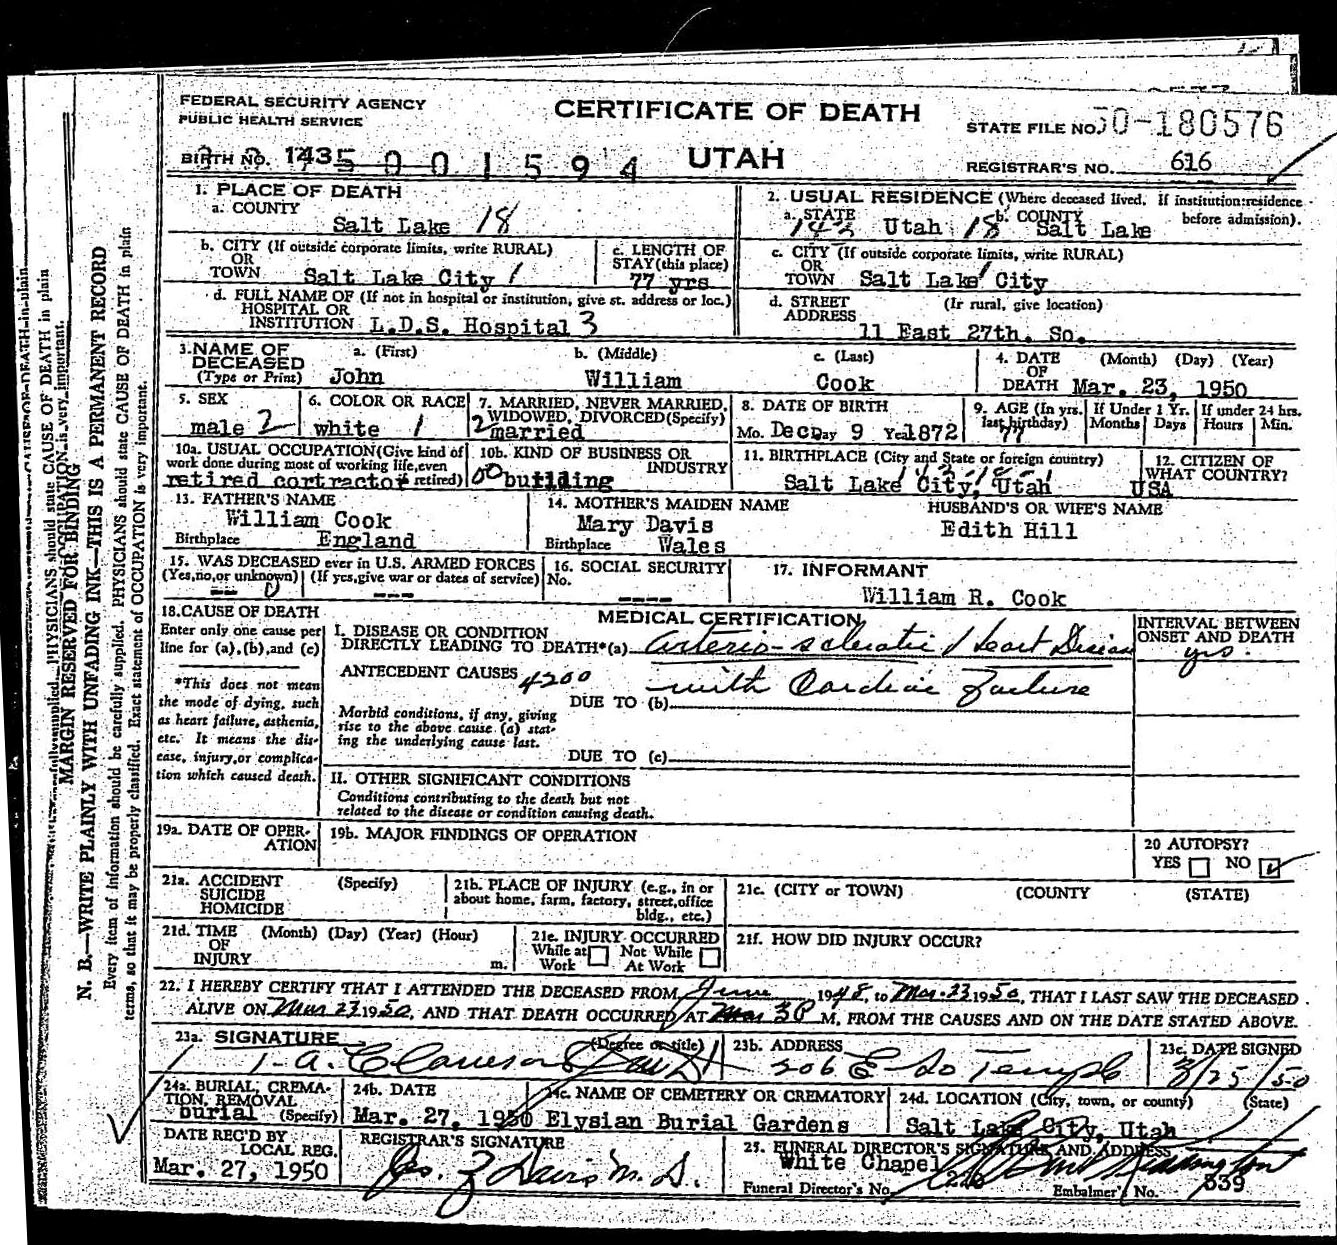 FEDERAL SECURITY AGENCY
PUBLIC HEALTH SERVICE
CERTIFICATE OF DEATH
UTAH
STATE FILE NO. 50-180576
BIRTH NO. 1435 0 0 1 5 9 4
REGISTRAR'S NO. 616
1. PLACE OF DEATH
a. COUNTY
Salt Lake 18
2. USUAL RESIDENCE (Where deceased lived. If institution: residence before admission).
a. STATE b. COUNTY
143 Utah 18 Salt Lake
b. CITY (If outside corporate limits, write RURAL)
OR
TOWN Salt Lake City 1
c. LENGTH OF
STAY (this place)
77 yrs
c. CITY (If outside corporate limits, write RURAL)
OR
TOWN Salt Lake City
d. FULL NAME OF (If not in hospital or institution, give st. address or loc.)
HOSPITAL OR
INSTITUTION L.D.S. Hospital 3
d. STREET (If rural, give location)
ADDRESS
11 East 27th. So.
3. NAME OF a. (First) b. (Middle) c. (Last)
DECEASED
(Type or Print) John William Cook
4. DATE (Month) (Day) (Year)
OF
DEATH Mar. 23, 1950
5. SEX
male 2
6. COLOR OR RACE
white 1
7. MARRIED, NEVER MARRIED,
WIDOWED, DIVORCED (Specify)
2 married
8. DATE OF BIRTH
Mo. Dec Day 9 Yr 1872
9. AGE (In yrs. last birthday)
77
If Under 1 Yr. If under 24 hrs.
Months Days Hours Min.
10a. USUAL OCCUPATION (Give kind of
work done during most of working life, even
retired contractor retired)
10b. KIND OF BUSINESS OR
INDUSTRY
00 building
11. BIRTHPLACE (City and State or foreign country)
Salt Lake City, Utah
12. CITIZEN OF
WHAT COUNTRY?
USA
13. FATHER'S NAME
William Cook
Birthplace England
14. MOTHER'S MAIDEN NAME
Mary Davis
Birthplace Wales
HUSBAND'S OR WIFE'S NAME
Edith Hill
15. WAS DECEASED ever in U.S. ARMED FORCES
(Yes, no, or unknown) (If yes, give war or dates of service)
-- 0 ---
16. SOCIAL SECURITY
No.
----
17. INFORMANT
William R. Cook
18. CAUSE OF DEATH
Enter only one cause per
line for (a), (b), and (c)
*This does not mean
the mode of dying, such
as heart failure, asthenia,
etc. It means the dis-
ease, injury, or complica-
tion which caused death.
MEDICAL CERTIFICATION
INTERVAL BETWEEN
ONSET AND DEATH
I. DISEASE OR CONDITION
DIRECTLY LEADING TO DEATH*(a) Arterio-sclerotic Heart Disease
yrs.
ANTECEDENT CAUSES 4200
DUE TO (b) with Cardiac Failure
Morbid conditions, if any, giving
rise to the above cause (a) stat-
ing the underlying cause last.
DUE TO (c)
II. OTHER SIGNIFICANT CONDITIONS
Conditions contributing to the death but not
related to the disease or condition causing death.
19a. DATE OF OPER-
ATION
19b. MAJOR FINDINGS OF OPERATION
20 AUTOPSY?
YES NO
21a. ACCIDENT (Specify)
SUICIDE
HOMICIDE
21b. PLACE OF INJURY (e.g., in or
about home, farm, factory, street, office
bldg., etc.)
21c. (CITY or TOWN) (COUNTY) (STATE)
21d. TIME (Month) (Day) (Year) (Hour)
OF
INJURY m.
21e. INJURY OCCURRED
While at Not While
Work At Work
21f. HOW DID INJURY OCCUR?
22. I HEREBY CERTIFY THAT I ATTENDED THE DECEASED FROM June 1948, to Mar. 23 1950, THAT I LAST SAW THE DECEASED
ALIVE ON Mar 23 1950, AND THAT DEATH OCCURRED AT M, FROM THE CAUSES AND ON THE DATE STATED ABOVE.
23a. SIGNATURE (Degree or title)
23b. ADDRESS
206 E So Temple
23c. DATE SIGNED
3/25/50
24a. BURIAL, CREMA-
TION, REMOVAL
burial (Specify)
24b. DATE
Mar. 27, 1950
24c. NAME OF CEMETERY OR CREMATORY
Elysian Burial Gardens
24d. LOCATION (City, town, or county) (State)
Salt Lake City, Utah
DATE REC'D BY
LOCAL REG.
Mar. 27, 1950
REGISTRAR'S SIGNATURE
25. FUNERAL DIRECTOR'S SIGNATURE AND ADDRESS
White Chapel
Funeral Director's No. Embalmer's No. 539
MARGIN RESERVED FOR BINDING
N. B.—WRITE PLAINLY WITH UNFADING INK—THIS IS A PERMANENT RECORD
Every item of information should be carefully supplied. PHYSICIANS should state CAUSE OF DEATH in plain
terms, so that it may be properly classified. Exact statement of OCCUPATION is very important.